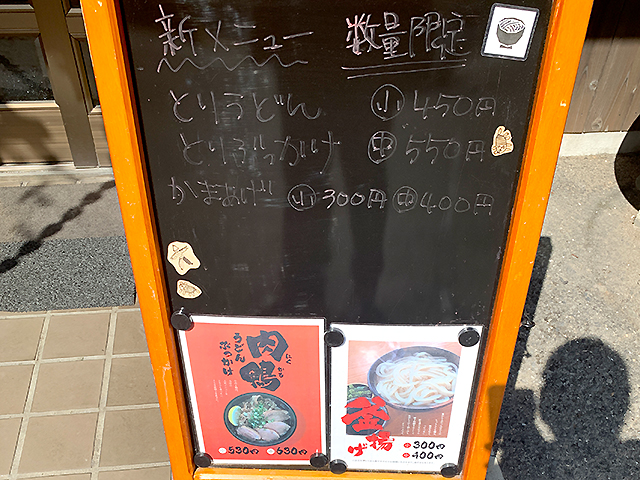 新メニュー 数量限定
とりうどん 小 450円
とりぶっかけ 中 550円
かまあげ 小 300円 中 400円
肉鴨
にく
かも
うどん
ぶっかけ
小530円 中630円
釜揚げ
小300円
中400円